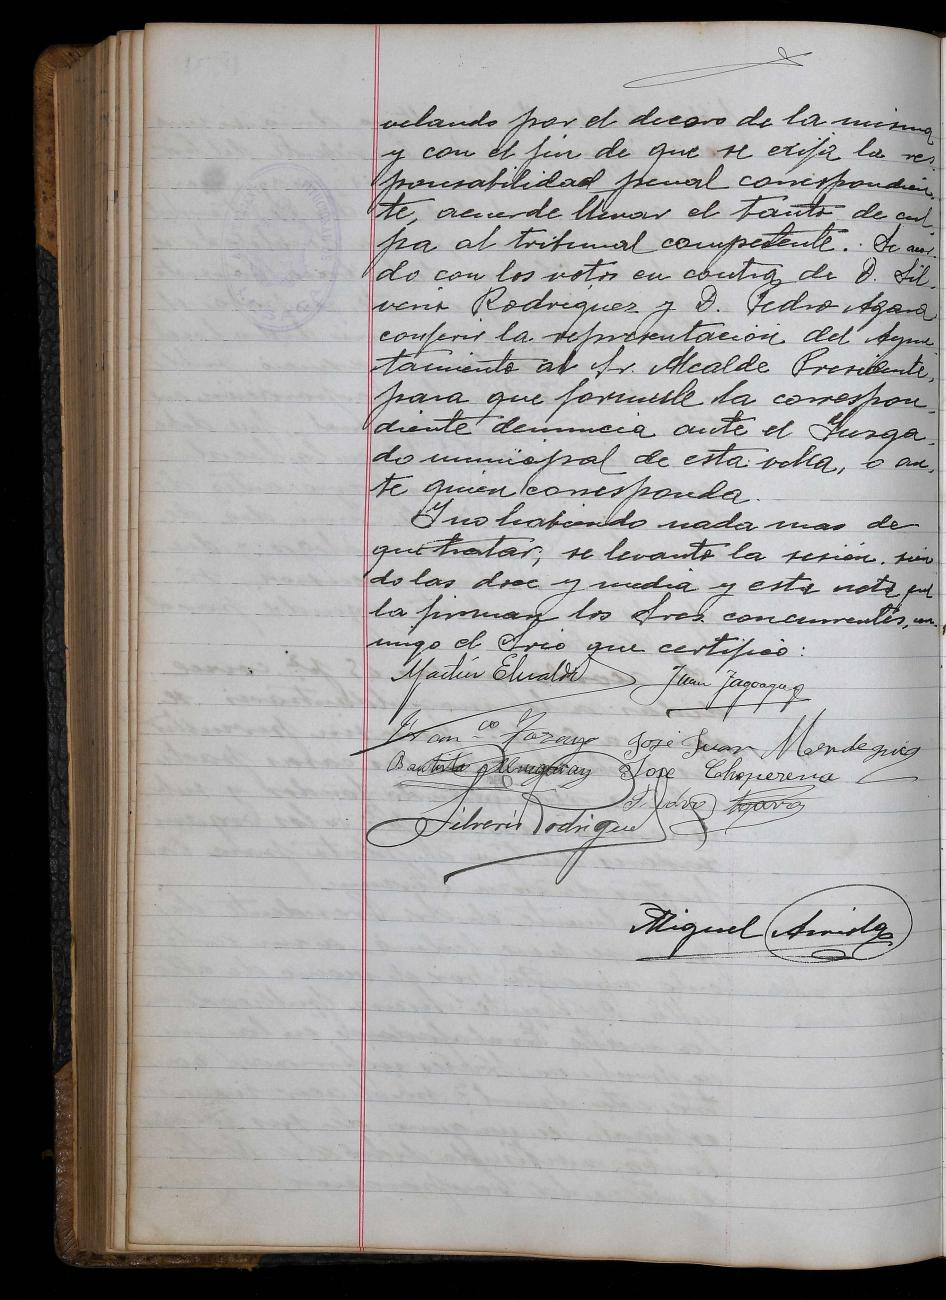 velando por el decoro de la misma
y con el fin de que se exija la res-
ponsabilidad penal correspondien-
te, acuerde llevar el tanto de cul-
pa al tribunal competente. Se acor-
do con los votos en contra de D. Sil-
verio Rodriguez y D. Pedro Apara
conferir la representación del Ayun
tamiento al Sr. Alcalde Presidente,
para que formule la correspon-
diente denuncia ante el Juzga-
do municipal de esta villa, o an-
te quien corresponda.
Y no habiendo nada mas de
que tratar, se levanto la sesión, sien
do las doce y media y esta nota que
la firman los Sres. concurrentes, con-
migo el Srio que certifico:
Martin Elizalde Juan Jagoaga
Franco José Juan Mendegía
Bautista José Choperena
Silverio Rodriguez Pedro
Miguel